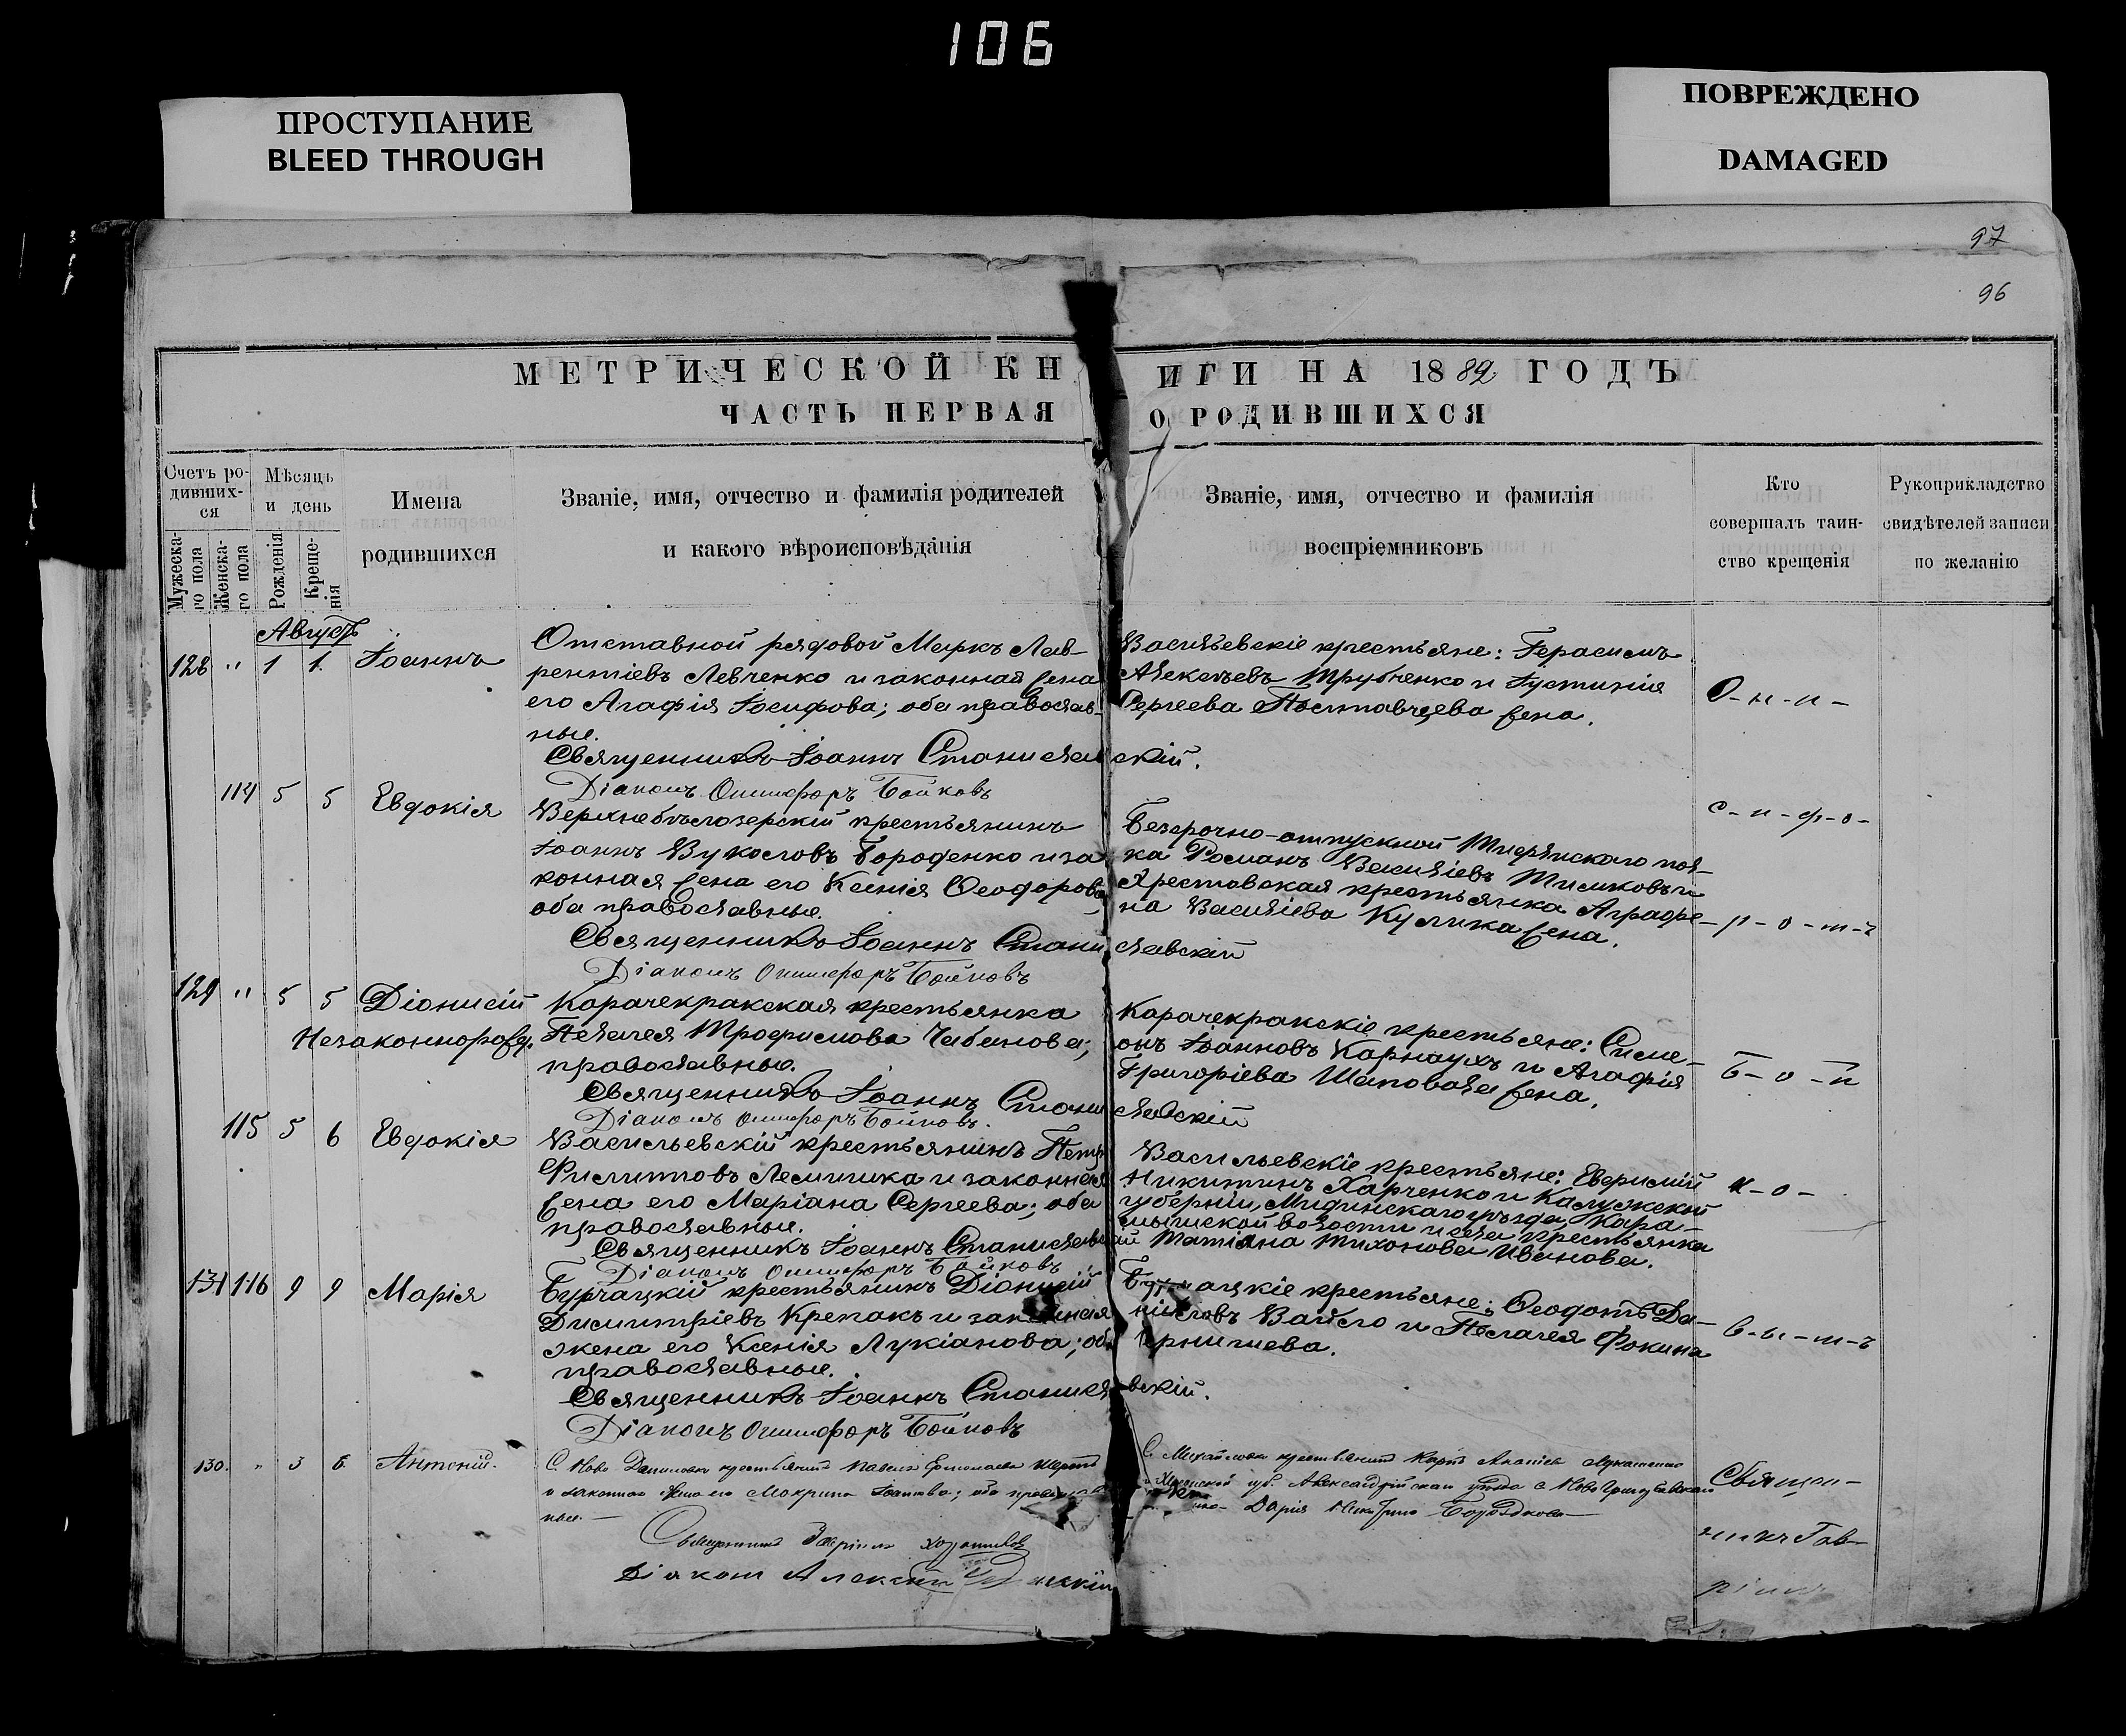 106
ПРОСТУПАНИЕ
BLEED THROUGH
ПОВРЕЖДЕНО
DAMAGED
97
96
МЕТРИЧЕСКОЙ КНИГИ НА 1882 ГОДЪ
ЧАСТЬ ПЕРВАЯ О РОДИВШИХСЯ
Счетъ ро-
дивших-
ся
Мужеска-
го пола
Женска-
го пола
Мѣсяць
и день
Рожденія
Креще-
нія
Имена
родившихся
Званіе, имя, отчество и фамилія родителей
и какого вѣроисповѣданія
Званіе, имя, отчество и фамилія
воспріемниковъ
Кто
совершалъ таин-
ство крещенія
Рукоприкладство
свидѣтелей записи
по желанію
Августъ
128 " 1 1 Іоаннъ
Отставной рядовой Маркъ Лав-
рентіевъ Левченко и законная жена
его Агафія Іосифова; оба православ-
ные.
Васильевскіе крестьяне: Герасимъ
Алексѣевъ Трубченко и Іустинія
Сергеева Поставцева жена.
О-н-и-
Священникъ Іоаннъ Станиславскій.
Діаконъ Онисифоръ Бойковъ
114 5 5 Евдокія
Верхнебѣлозерскій крестьянинъ
Іоаннъ Вуколовъ Бороденко и за-
конная жена его Ксенія Ѳеодорова
оба православные.
Безсрочно-отпускной Тифлисскаго пол-
ка Романъ Василіевъ Тимковъ и
Хрестовская крестьянка Аграфе-
на Василіева Кулика жена.
с-и-ф-о-
р-о-т-ъ
Священникъ Іоаннъ Станиславскій
Діаконъ Онисифоръ Бойковъ
129 " 5 5 Діонисій
Незаконнорожд.
Карачекракская крестьянка
Пелагея Трофимова Чабанова;
православные.
Карачекракскіе крестьяне: Симе-
онъ Іоанновъ Карнаухъ и Агафія
Григоріева Шаповала жена.
Б-о-й
Священникъ Іоаннъ Станиславскій
Діаконъ Онисифоръ Бойковъ.
115 5 6 Евдокія
Васильевскій крестьянинъ Петръ
Филиповъ Лемишка и законная
жена его Маріана Сергеева; оба
православные.
Васильевскіе крестьяне: Евфимій
Никитинъ Харченко и Калужской
губерніи, Мидинскаго уѣзда, Кара-
мышской волости и села крестьянка
Татіана Тихонова Иванова.
к-о-
Священникъ Іоаннъ Станиславскій
Діаконъ Онисифоръ Бойковъ
131 116 9 9 Марія
Бурчацкій крестьянинъ Діонисій
Димитріевъ Крепакъ и законная
жена его Ксенія Лукіанова; оба
православные.
Бурчацкіе крестьяне: Ѳеодотъ Да-
ніиловъ Вайло и Пелагея Фокина
Чернишева.
в-ы-т-ъ
Священникъ Іоаннъ Станиславскій.
Діаконъ Онисифоръ Бойковъ
130. " 3 6 Антоній.
С. Ново Даниловки крестьянинъ Павелъ
и законная жена его Макрина Іоаннова; оба православ-
ные. —
С. Михайловки крестьянинъ Карпъ
Херсонской губ. Александрійскаго уѣзда с.
Дарія
Священ-
никъ Гав-
ріилъ
Священникъ Гавріилъ
Діаконъ Алексій